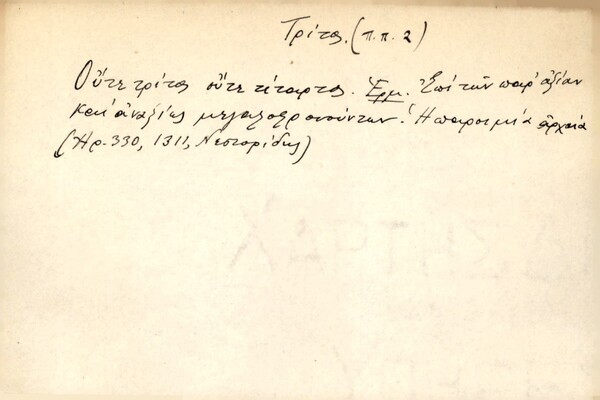 Τρίτος. (π.π. 2)
Οὔτε τρίτος οὔτε τέταρτος. Ἑρμ. Ἐπὶ τῶν παρ' ἀξίαν
καὶ ἀναξίως μεγαλοφρονούντων. Ἡ παροιμία ἀρχαία
(Ἠρ. 330, 1311, Νεστορίδης)